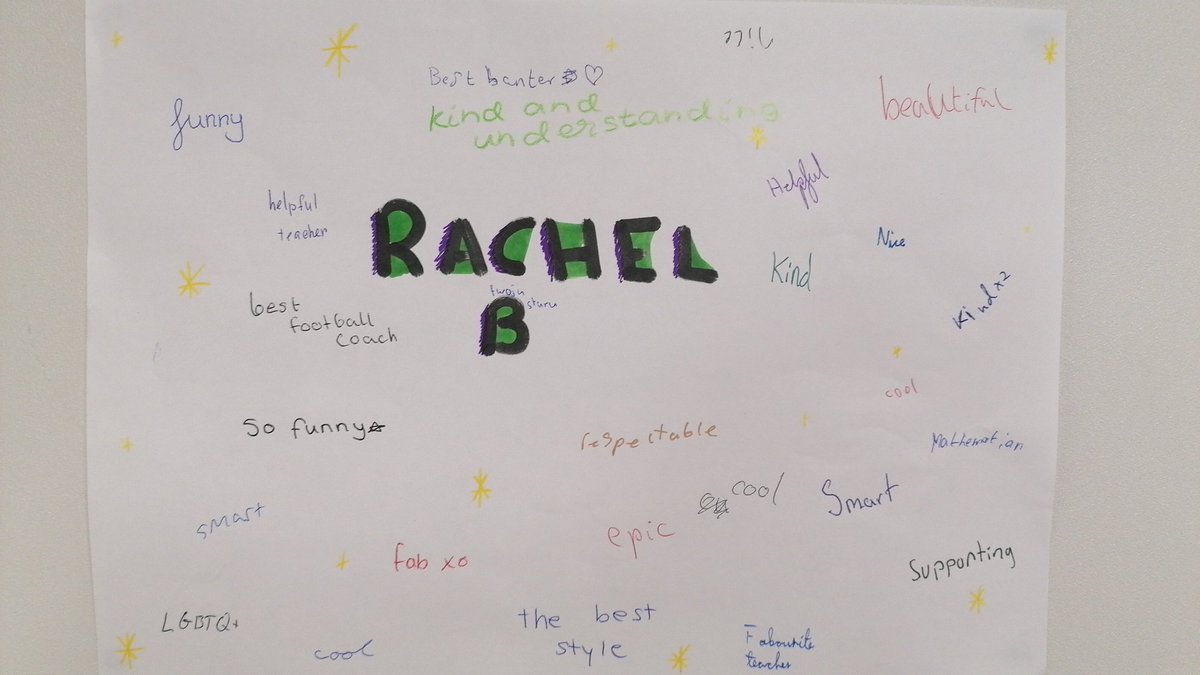 Best banter
kind and
understanding
beautiful
funny
Helpful
helpful
teacher
RACHEL
B
twoju
staru
Nice
Kind
Kind x2
best
football
coach
cool
so funny
respectable
Mathematian
cool
Smart
smart
epic
fab xo
Supporting
LGBTQ+
the best
style
cool
Fabourite
teacher